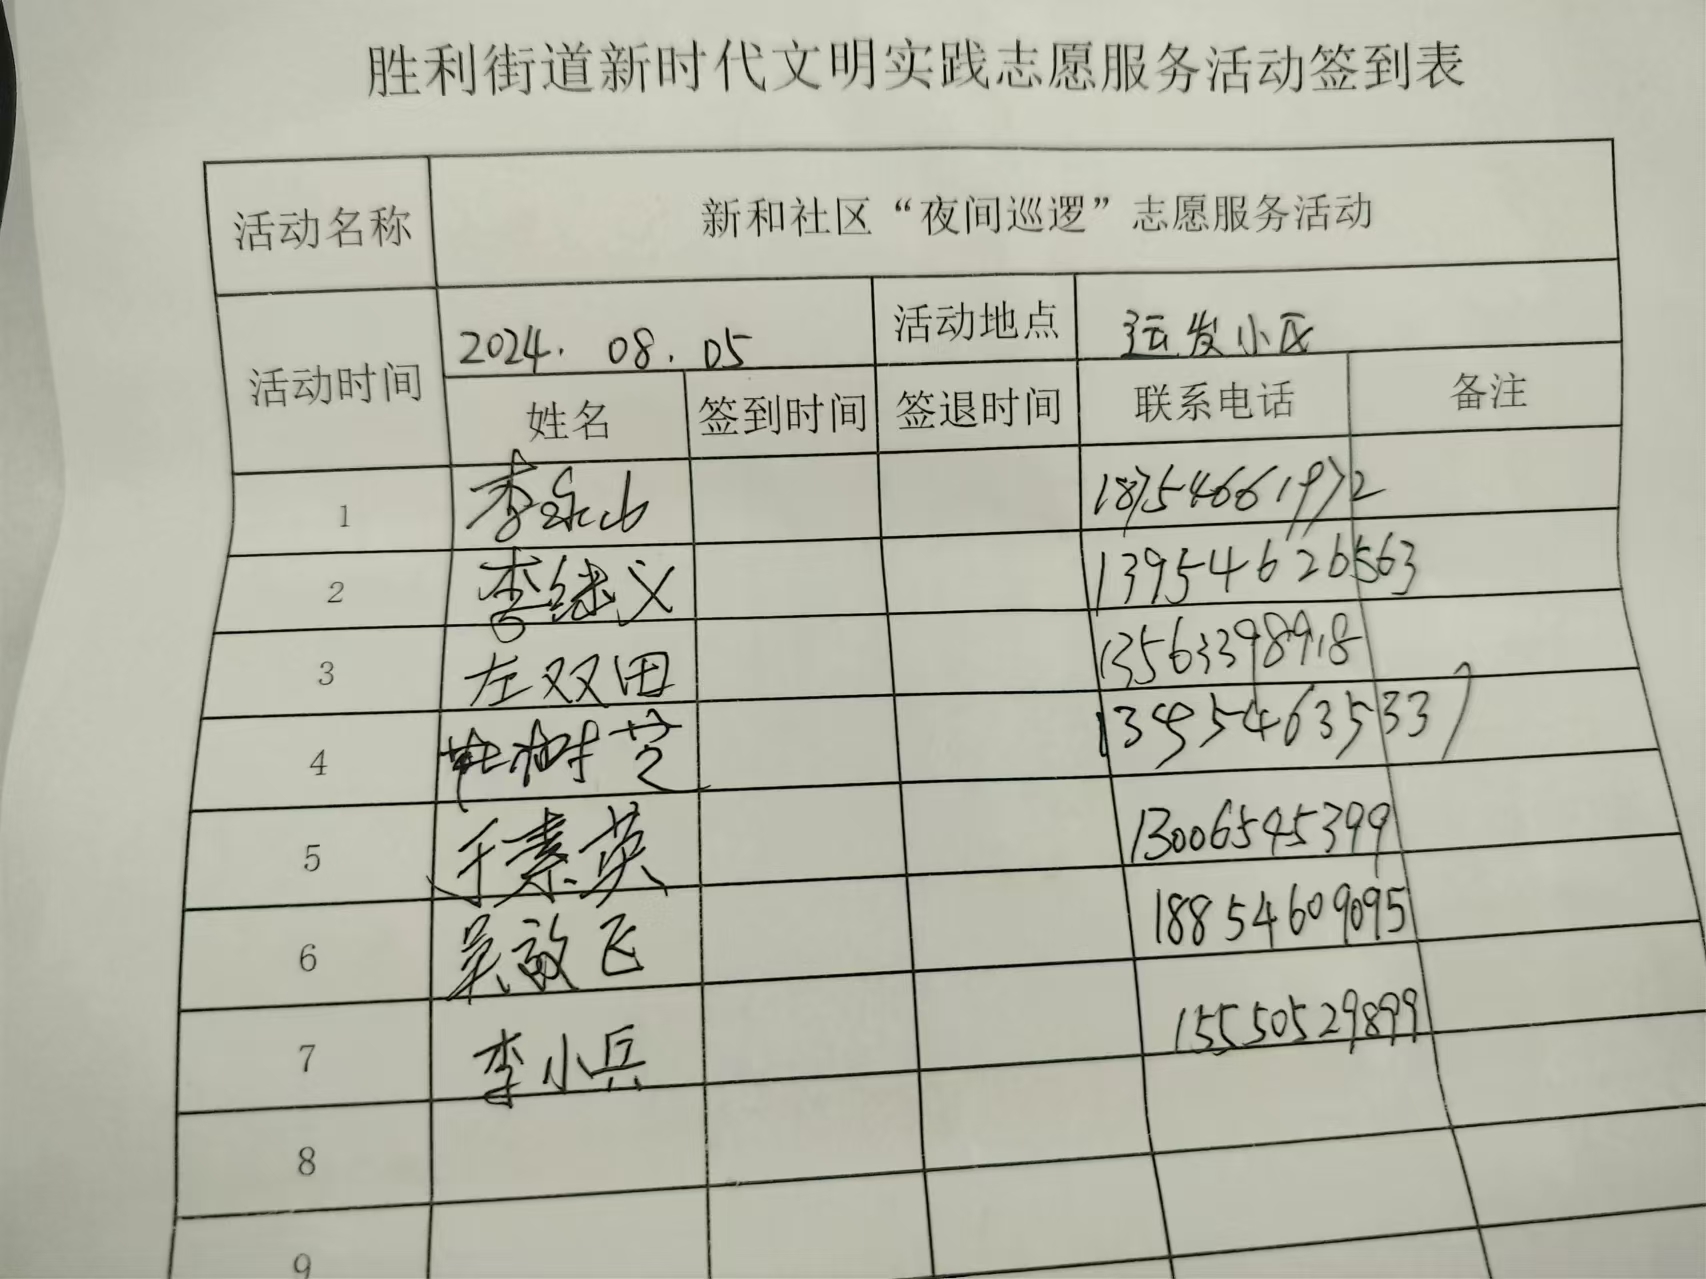 胜利街道新时代文明实践志愿服务活动签到表
活动名称 新和社区“夜间巡逻”志愿服务活动
活动时间 2024.08.05 活动地点 运发小区
姓名 签到时间 签退时间 联系电话 备注
1 李泉山 18754661972
2 李继义 13954626563
3 左双田 13563398918
4 杜树芝 13954635337
5 于素英 13006545399
6 吴敬飞 18854609095
7 李小兵 15550529899
8
9